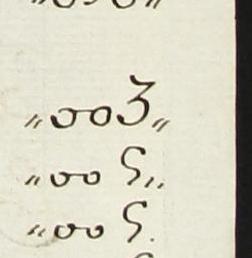 „003„
„00 5„
„00 5.